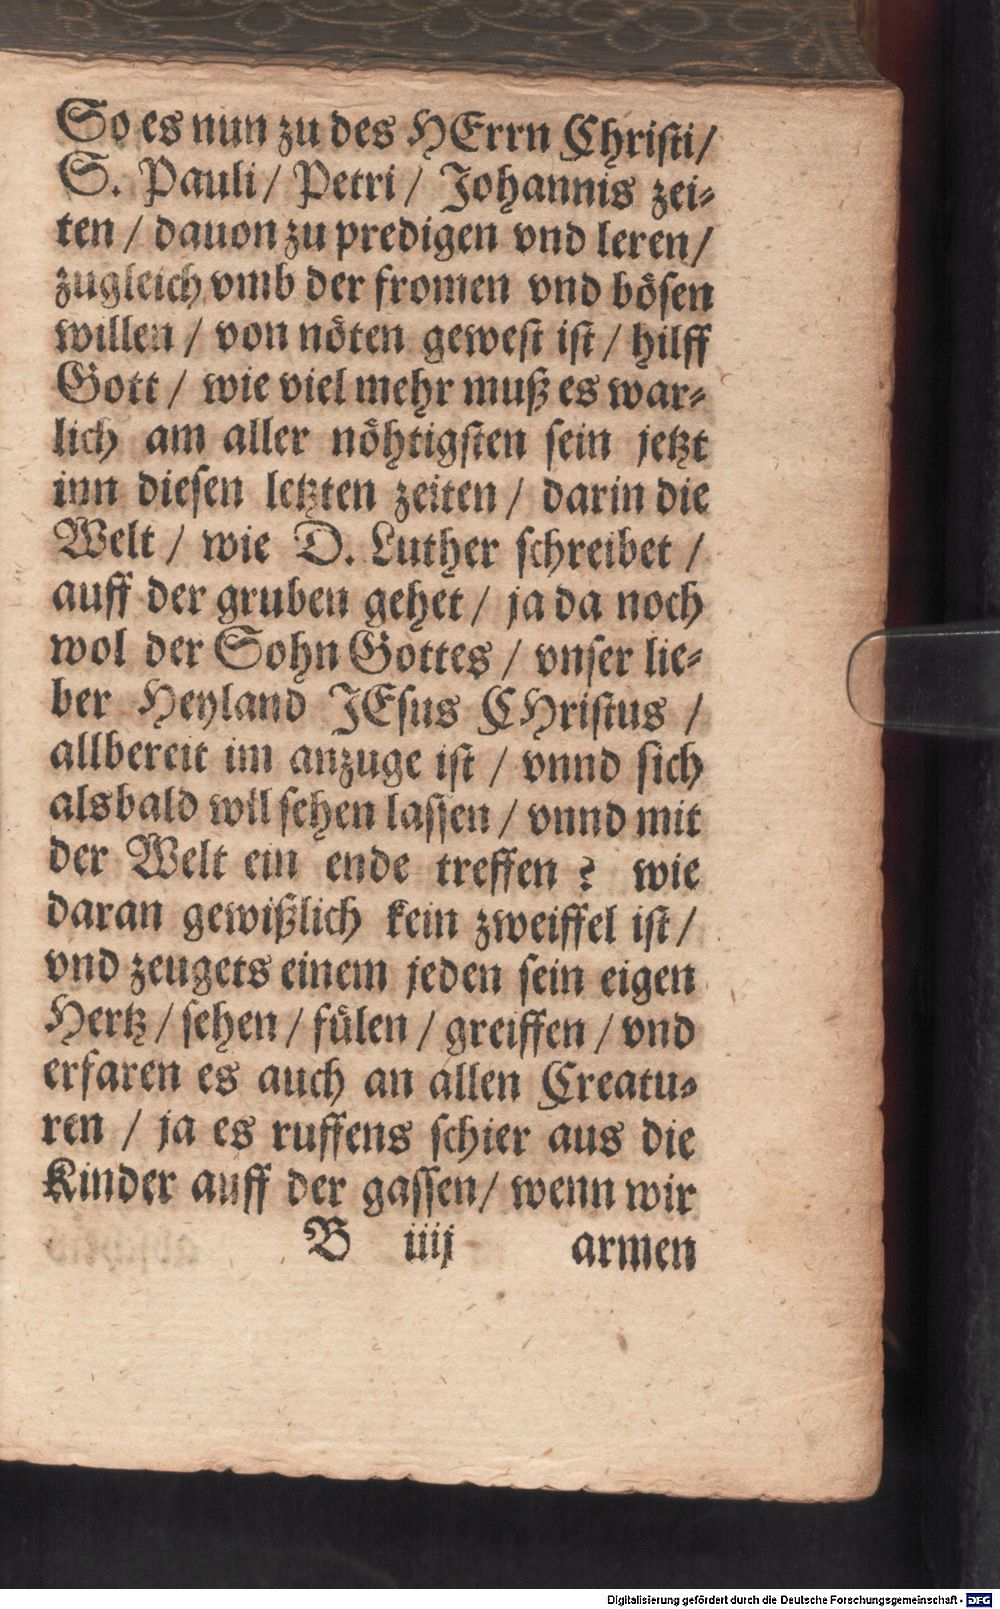 So es nun zu des HErrn Christi/
S. Pauli/ Petri/ Johannis zei⸗
ten / dauon zu predigen vnd leren/
zugleich vmb der fromen vnd bösen
willen / von nöten gewest ist / hilff
Gott / wie viel mehr muß es war⸗
lich am aller nöhtigsten sein jetzt
inn diesen letzten zeiten / darin die
Welt / wie D. Luther schreibet /
auff der gruben gehet / ja da noch
wol der Sohn Gottes / vnser lie⸗
ber Heyland JEsus CHristus /
allbereit im anzuge ist / vnnd sich
alsbald wil sehen lassen / vnnd mit
der Welt ein ende treffen ? wie
daran gewißlich kein zweiffel ist /
vnd zeugets einem jeden sein eigen
Hertz / sehen / fülen / greiffen / vnd
erfaren es auch an allen Creatu⸗
ren / ja es ruffens schier aus die
Kinder auff der gassen/ wenn wir
B iiij armen
Digitalisierung gefördert durch die Deutsche Forschungsgemeinschaft - DFG